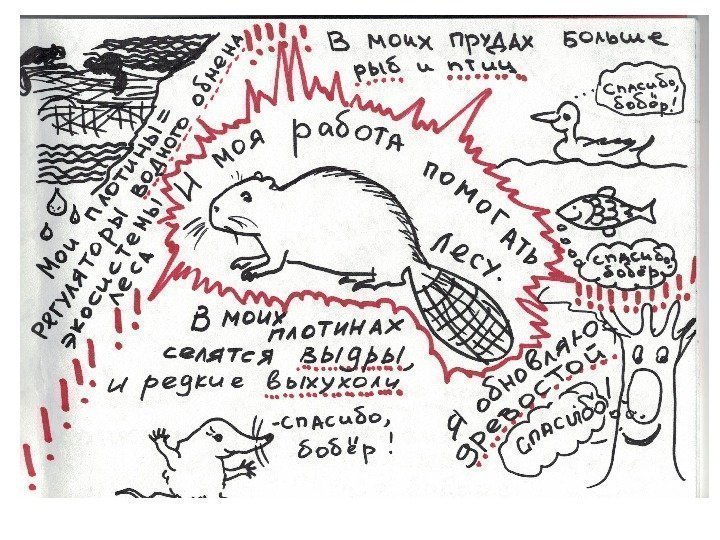 В моих прудах больше
рыб и птиц
Спасибо,
бобёр!
И моя работа помогать
лесу.
Мои плотины =
регуляторы водного обмена
экосистемы
леса
спасибо,
бобёр.
В моих плотинах
селятся выдры
и редкие выхухоли
-спасибо,
бобёр!
Я обновляю
древостой
спасибо!